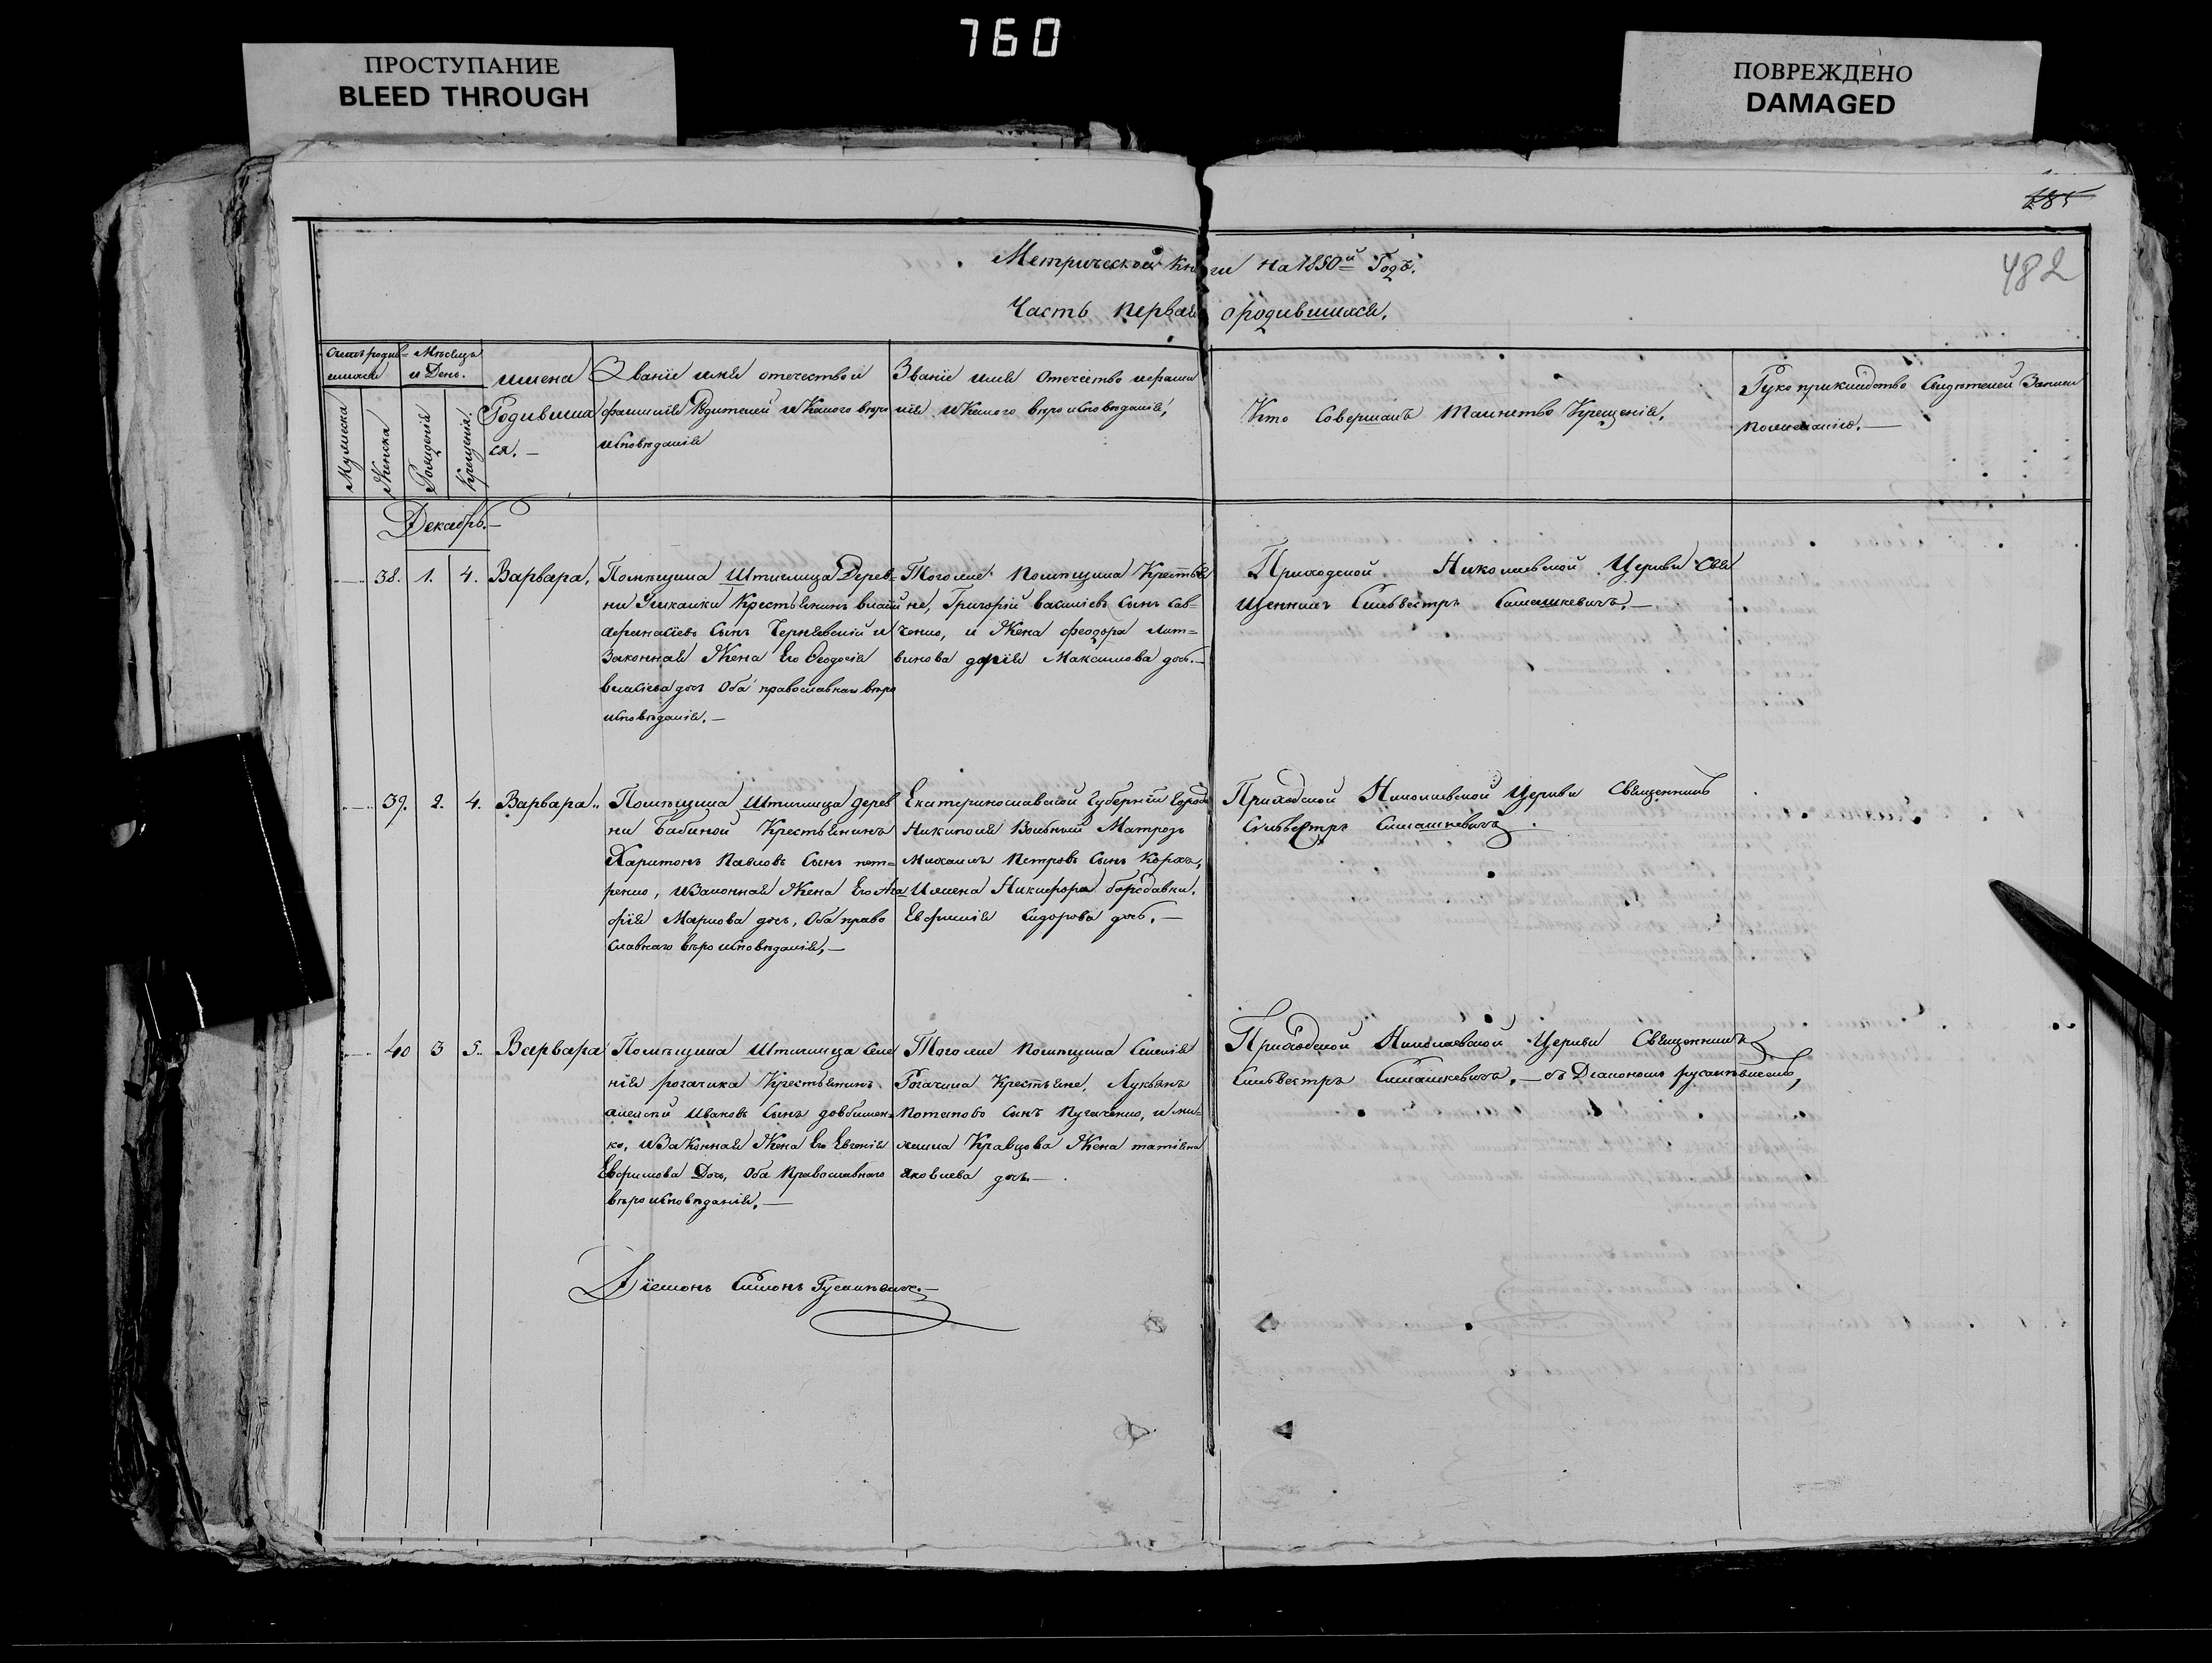 760
ПРОСТУПАНИЕ
BLEED THROUGH
ПОВРЕЖДЕНО
DAMAGED
485
482
Метрической Книги на 1850й Годъ.
Часть первая о родившихся.
Мѣсяцъ
и День.
Мужеска
Женска
Рожденія
Крещенія.
имена
Родивших
ся.
Званіе имя отечество и
фамилія Родителей и Какого вѣро
исповѣданія
Званіе имя Отечество и фами
лія и Какого вѣро исповѣданія,
Кто Совершалъ Таинство Крещенія.
Рукоприкладство Свидѣтелей Записи
По желанію.
Декабрь.
38. 1. 4. Варвара,
Помѣщика Штиглица Дерев-
ни Ушкалки Крестьянинъ
афанасіевъ Сынъ Чернявскій и
Законная Жена Его Ѳеодосія
власіева дочь Оба православнаго вѣро
исповѣданія.
Того же помѣщика Крестья
не, Григорій василіевъ Сынъ Сав-
ченко, и Жена феодора лит-
винова дарія Максимова дочь.
Приходской Николаевской Церкви Свя
щенникъ Сильвестръ Симашкевичъ.
39. 2. 4. Варвара.
Помѣщика Штиглица дерев
ни Бабиной Крестьянинъ
Харитонъ Павловъ Сынъ пет-
ренко, и Законная Жена Его Ага
фія Маркова дочь, Оба право
славнаго вѣро исповѣданія,
Екатеринославской Губерніи Города
Никополя Вольный Матрозъ
Михаилъ Петровъ Сынъ
и жена Никифора бородавки.
Евфимія Сидорова дочь.
Приходской Николаевской Церкви Священникъ
Сильвестръ Симашкевичъ.
40 3 5. Варвара
Помѣщика Штиглица Селе
нія рогачика Крестьянинъ
алексѣй Ивановъ Сынъ довбишен-
ко, и Законная Жена Его Евгенія
Евфимова Дочь, Оба Православнаго
вѣро исповѣданія.
Того же помѣщика Селенія
Рогачика Крестьяне, Лукьянъ
Потаповъ Сынъ Пугаченко, и ми-
хаила Кравцова Жена татіяна
Яковлева дочь
Приходской Николаевской Церкви Священникъ
Сильвестръ Симашкевичъ, съ Діакономъ
Діяконъ Симонъ